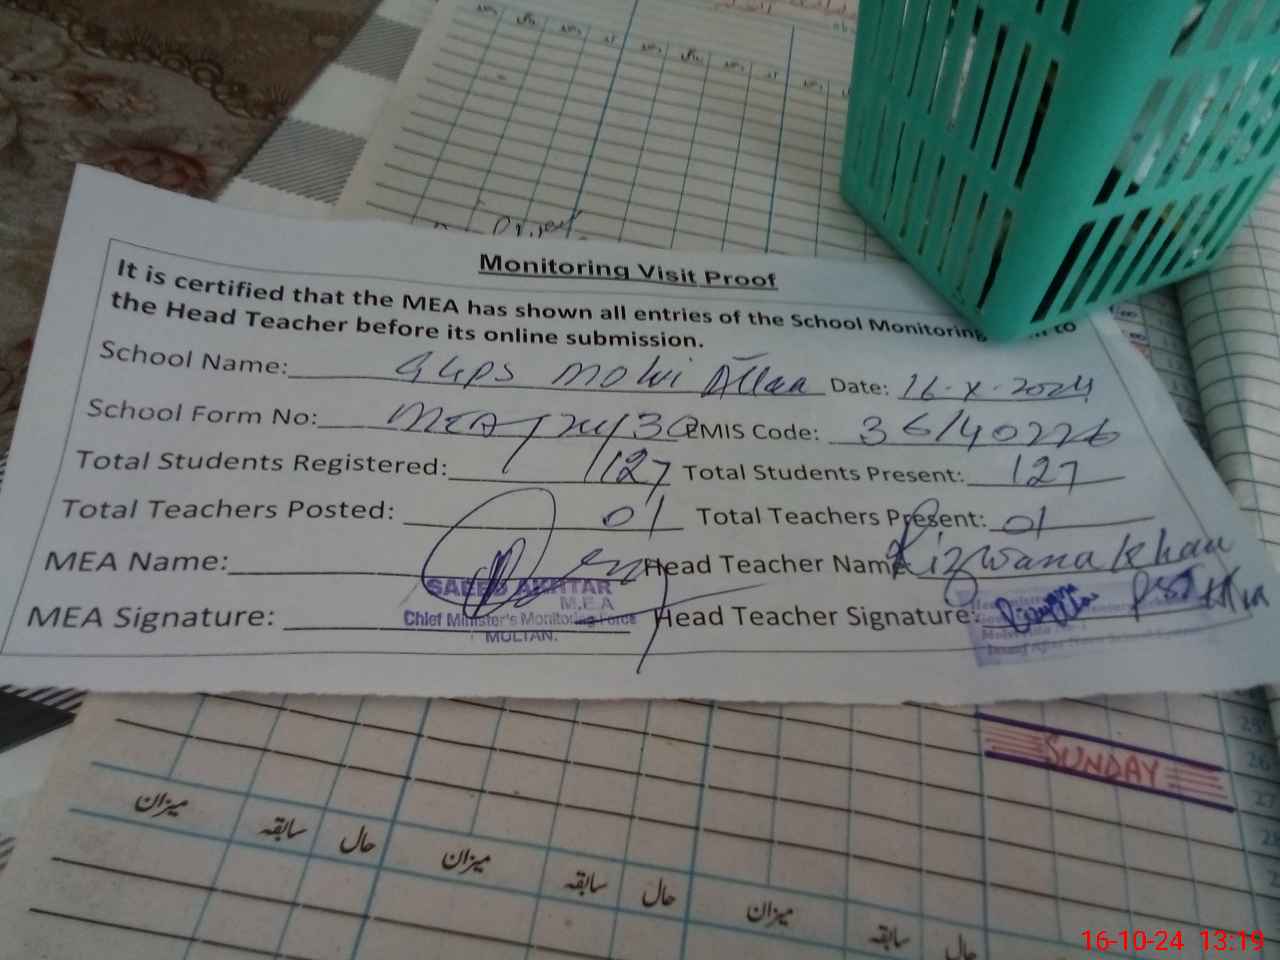 Monitoring Visit Proof
It is certified that the MEA has shown all entries of the School Monitoring to
the Head Teacher before its online submission.
School Name: GGPS Molvi Date: 16-X-2024
School Form No: EMIS Code: 36140226
Total Students Registered: 127 Total Students Present: 127
Total Teachers Posted: 01 Total Teachers Present: 01
MEA Name: Head Teacher Name Rizwana Khan
SAEED AKHTAR
M.E.A
MEA Signature: Head Teacher Signature: PST
Chief Minister's Monitoring Force
MULTAN.
SUNDAY
میزان سابقہ حال میزان سابقہ حال میزان سابقہ حال
16-10-24 13:19